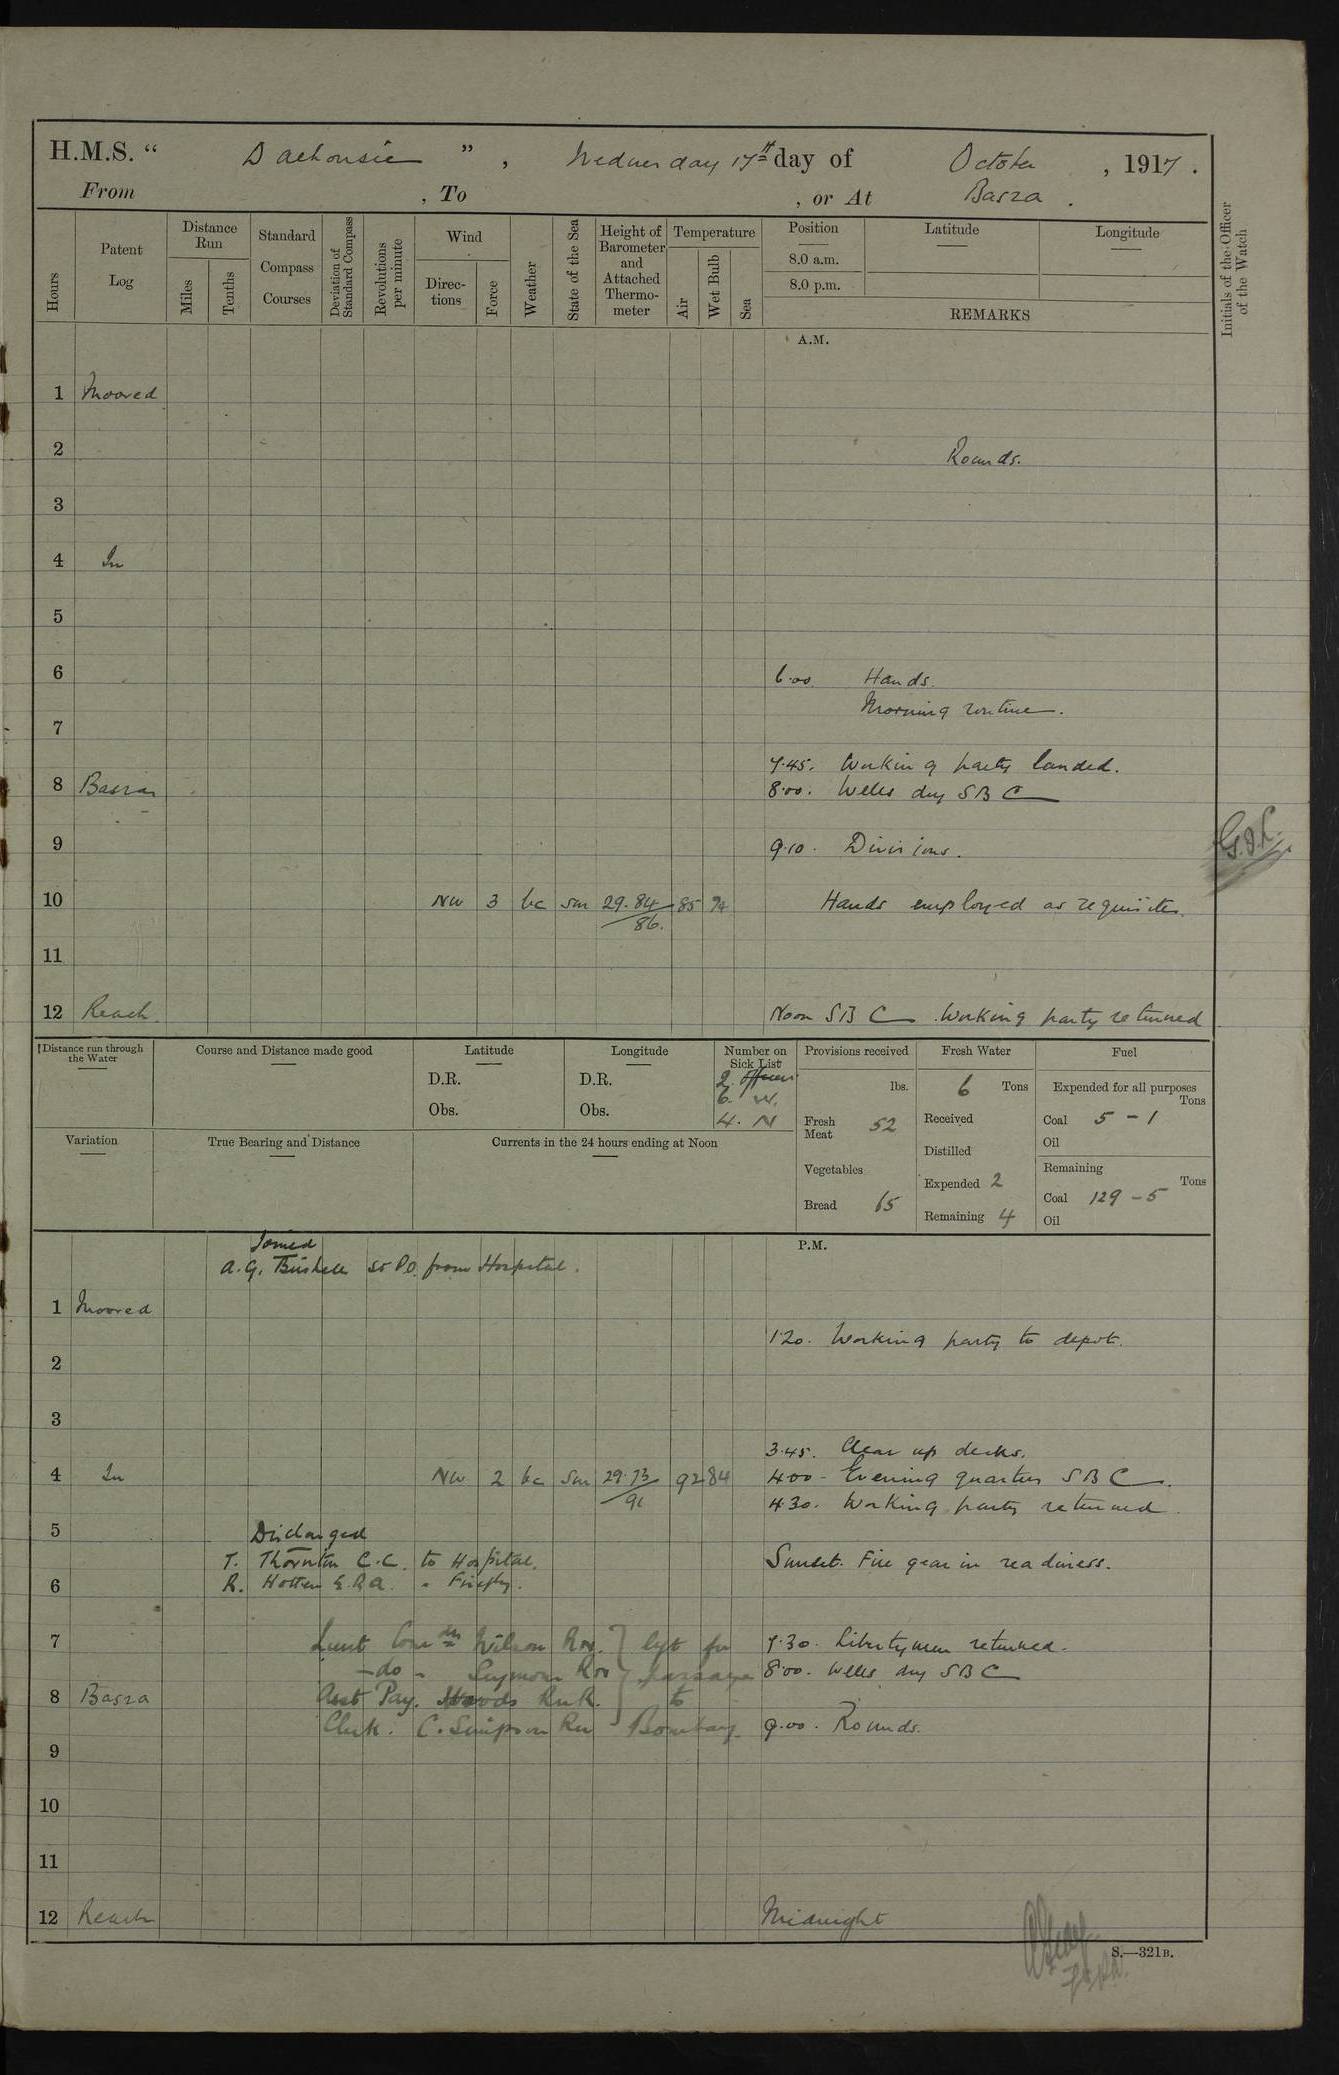 H.M.S. " Dalhousie " , Wednesday 17th day of October , 1917 .
From , To , or At Basra .
Hours
Patent Log
Distance Run
Miles
Tenths
Standard Compass Courses
Deviation of Standard Compass
Revolutions per minute
Wind
Directions
Force
Weather
State of the Sea
Height of Barometer and Attached Thermometer
Temperature
Air
Wet Bulb
Sea
Position
8.0 a.m.
8.0 p.m.
Latitude
Longitude
REMARKS
Initials of the Officer of the Watch
A.M.
1 Moored
2 Rounds.
3
4 In
5
6 6.00 Hands.
Morning routine.
7
7.45. Working party landed.
8 Basra 8.00. Wells dry SBC
9 9.10. Divisions.
G.S.L.
10 NW 3 bc sm 29.84 85 74 Hands employed as requisite.
86.
11
12 Reach. Noon SBC. Working party returned
Distance run through the Water
Course and Distance made good
Latitude
D.R.
Obs.
Longitude
D.R.
Obs.
Number on Sick List
2 Officers
6. W.
4. N
Provisions received
lbs.
Fresh Meat 52
Vegetables
Bread 65
Fresh Water
6 Tons
Received
Distilled
Expended 2
Remaining 4
Fuel
Expended for all purposes
Tons
Coal 5 - 1
Oil
Remaining
Tons
Coal 129 - 5
Oil
Variation
True Bearing and Distance
Currents in the 24 hours ending at Noon
P.M.
Joined
A. G. Bushell from Hospital.
1 Moored
1.20. Working party to depot.
2
3
3.45. Clear up decks.
4 In NW 2 bc sm 29.73 92 84 4.00 - Evening quarters SBC.
91
4.30. Working party returned.
5 Discharged
T. Thornton C.C. to Hospital. Sunset. Fire gear in readiness.
6 R. Hotten E.R.A. " Firefly.
7 Lieut Comdr Wilson RNR. left for 7.30. Libertymen returned.
-do- Seymour RNR passage 8.00. Wells dry SBC
8 Basra Asst Pay. Woods RNR. to
Clerk. C. Simpson RN Bombay. 9.00. Rounds.
9
10
11
12 Reach Midnight
S.—321B.